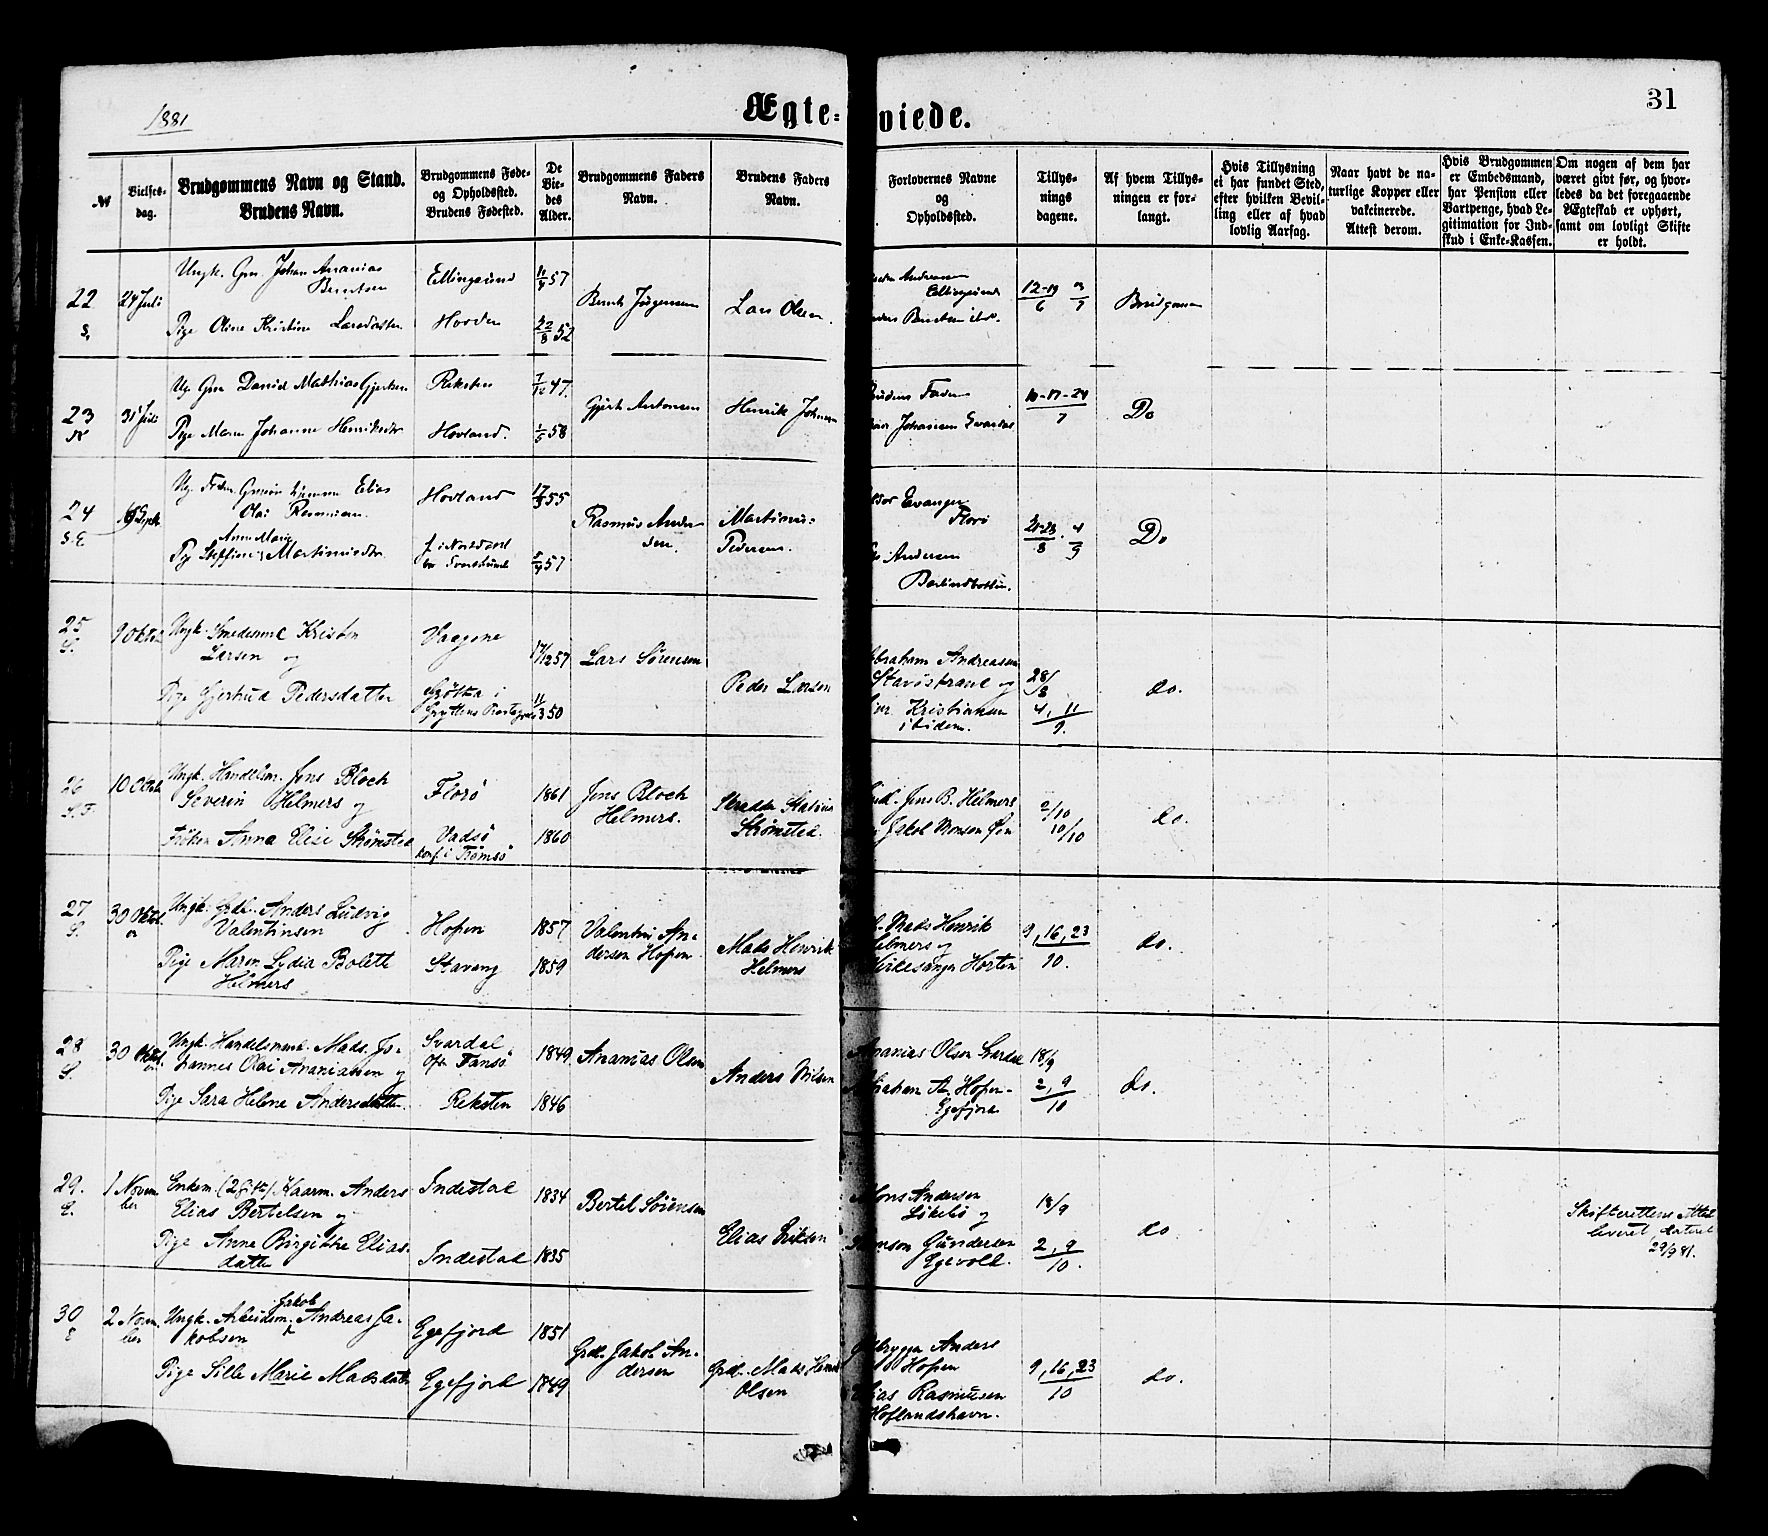 1881
Ægte- viede.
31
№
Vielses-
dag.
Brudgommens Navn og Stand.
Brudens Navn.
Brudgommens Føde-
og Opholdssted.
Brudens Fødested.
De
Vie-
des
Alder.
Brudgommens Faders
Navn.
Brudens Faders
Navn.
Forlovernes Navne
og
Opholdssted.
Tillys-
nings
dagene.
Af hvem Tillys-
ningen er for-
langt.
Hvis Tillysning
ei har fundet Sted,
efter hvilken Bevil-
ling eller af hvad
lovlig Aarsag.
Naar havt de na-
turlige Kopper eller
vakcinerede.
Attest derom.
Hvis Brudgommen
er Embedsmand,
har Pension eller
Vartpenge, hvad Le-
gitimation for Ind-
skud i Enke-Kassen.
Om nogen af dem har
været givt før, og hvor-
ledes da det foregaaende
Ægteskab er ophørt,
samt om lovligt Skifte
er holdt.
22
S.
24 Juli
Ungk. Gm. Johan Ananias
Berntsen
Pige Oline Kristine Larsdatter
Ellingsund
Hovden
11/9 57
22/8 52
Bernt Jørgensen
Lars Olsen
Andreasen
Ellingsund
Berntsen ibd.
12-19/6 3/7
Brudgommen
23
N
31 Juli
Ug. Gm Daniel Mathias Gjertsen
Pige Maren Johanne Henriksdtr
Reksten
Hovland.
7/12 47.
1/5 58
Gjert Antonsen
Henrik Johnsen
Brudens Fader
Johansen Svardal
10-17-24/7
Do
24
S. E
Sept.
Ug. Elias
Olai Rasmussen.
Anne Marie
Pige Steffine Martinusdtr
Hovland
f. i
17/3 55
5/9 57
Rasmus Ander
sen.
Martinus
Pedersen.
Evanger
Florø
Andersen
21-28/8 . 4/9
Do
25
S.
9 Oktbr
Ungk. Smedesvend Kristen
Larsen og
Pige Gjertrud Pedersdatter
Vaagene
i
Gryttens Præstegjeld
17/12 57
11/3 50
Lars Sørensen
Peder Larsen
Abraham Andreasen
Stavøstrand og
Kristiansen
ibidem.
28/8
4, 11/9.
do.
26
S. F.
10 Oktb.
Ungk. Handelsm. Jens Bloch
Severin Helmers og
Frøken Anna Elise Strømsted
Florø
Vadsø
konf. i Tromsø
1861
1860
Jens Bloch
Helmers.
Strømsted.
Jens B. Helmers
Jakob Monsen Øen
2/10
10/10
do.
27
S.
30 Oktob.
er
Ungk. Grdb. Anders Ludvig
Valentinsen
Pige Maren Lydia Bolette
Helmers
Hopen
Stavang
1857
1859
Valentin An-
dersen Hopen
Mads Henrik
Helmers
Mads Henrik
Helmers og
Kirkesanger Horten
9, 16, 23
10.
do.
28
S.
30 Oktob.
er
Ungk. Handelsmand. Mads Jo-
hannes Olai Ananiassen og
Pige Sara Helene Andersdatter.
Svardal
Oph. Fansø
Reksten
1849
1846
Ananias Olsen
Anders Nilsen
Ananias Olsen Svardal
Abraham A. Hopen
Egefjord
18/9
2, 9/10
do.
29.
E.
1 Novem
ber
Enkem. (2 Gift) Kaarm. Anders
Elias Bertelsen og
Pige Anne Birgitte Elias-
datter
Indestad
Indestad
1834
1835
Bertel Sørensen
Elias Eriksen
Mons Andersen
Løkebø og
Samson Gundersen
Egevoll.
18/9
2, 9/10.
do.
Skifterettens Attest
leveret, dateret
29/9 81.
30
E
2 Novem.
ber
Jakob
Ungk. Arbeidsm. Andreas Ja-
kobsen &
Pige Sille Marie Madsdatter
Egefjord
Egefjord
1851
1849
Grdb. Jakob An-
dersen
Grdb. Mads Henrik
Olsen
Anders
Hopen
Elias Rasmusen
Hoflandshavn.
9, 16, 23/10
do.